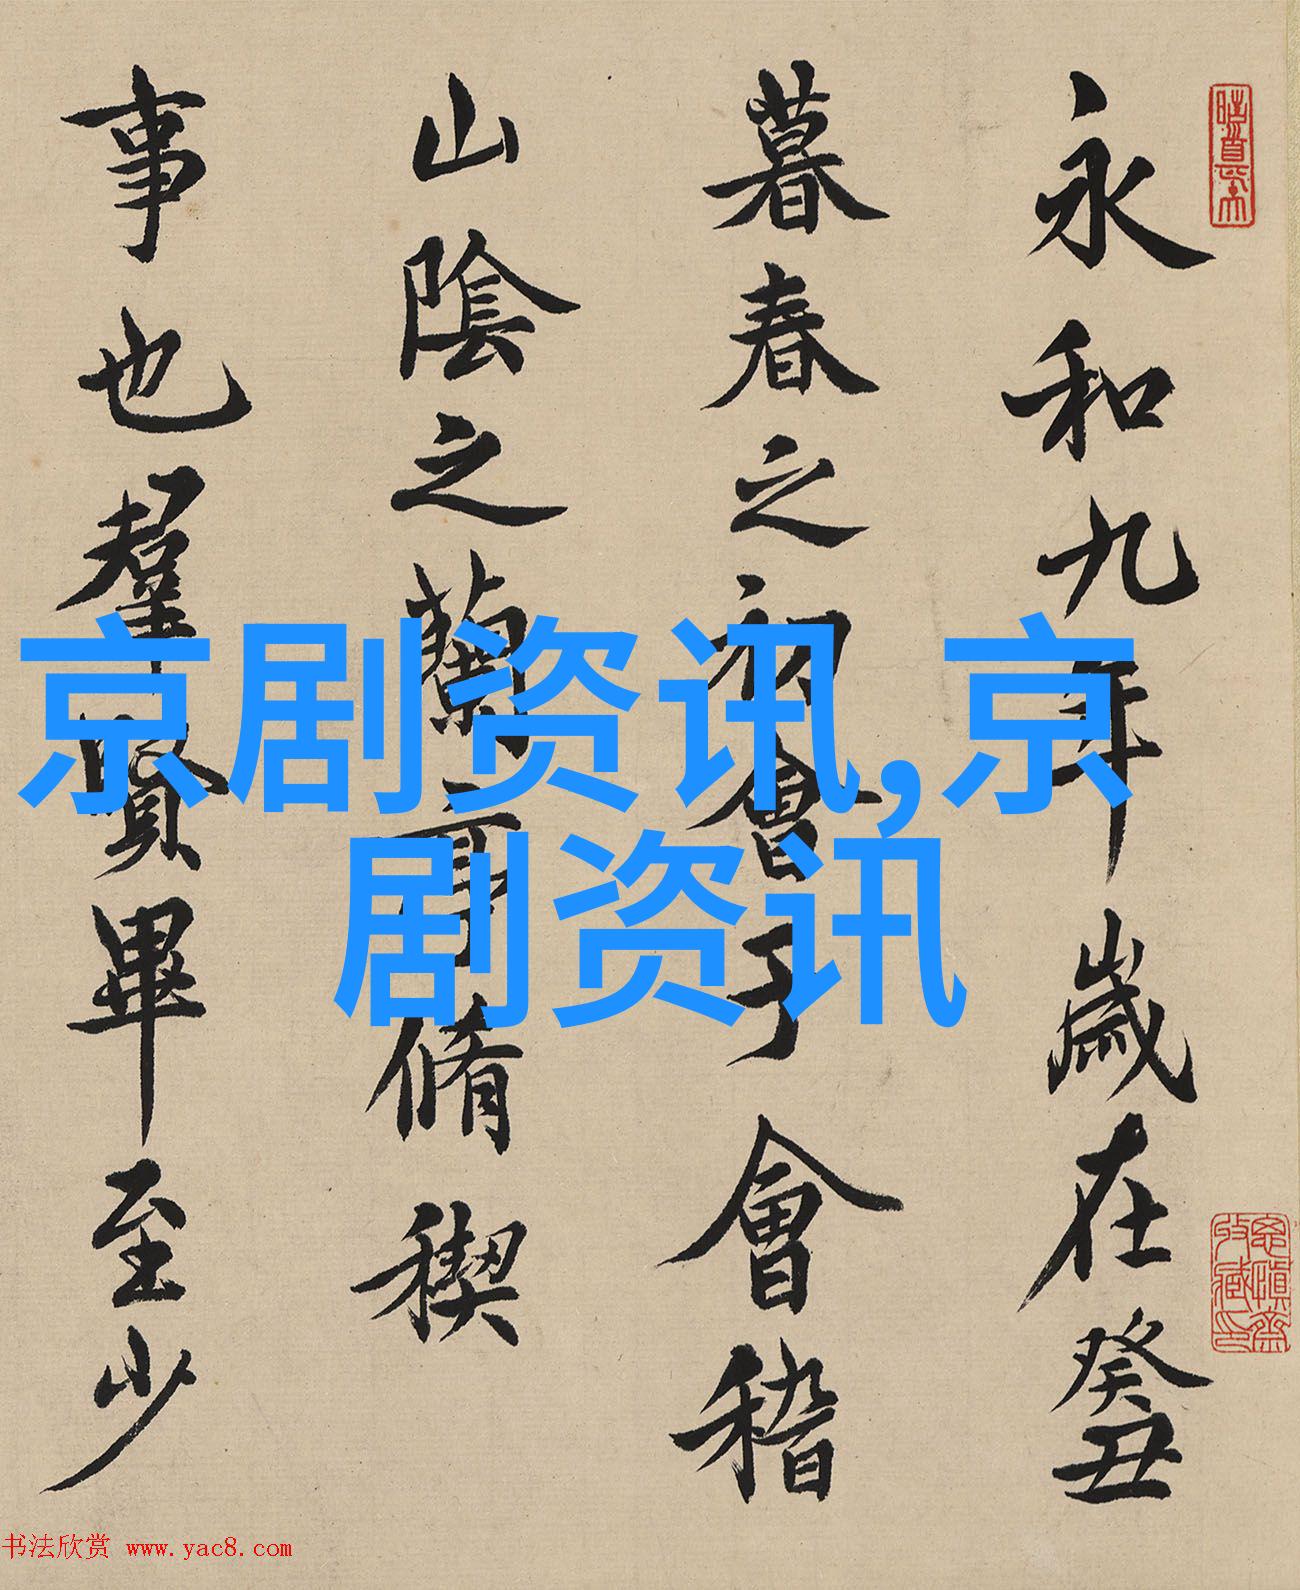 永和九年歲在癸丑
暮春之初會于會稽
山陰之蘭亭脩稧
事也羣賢畢至少
京剧资讯,京
剧资讯
书法欣赏 www.yac8.com